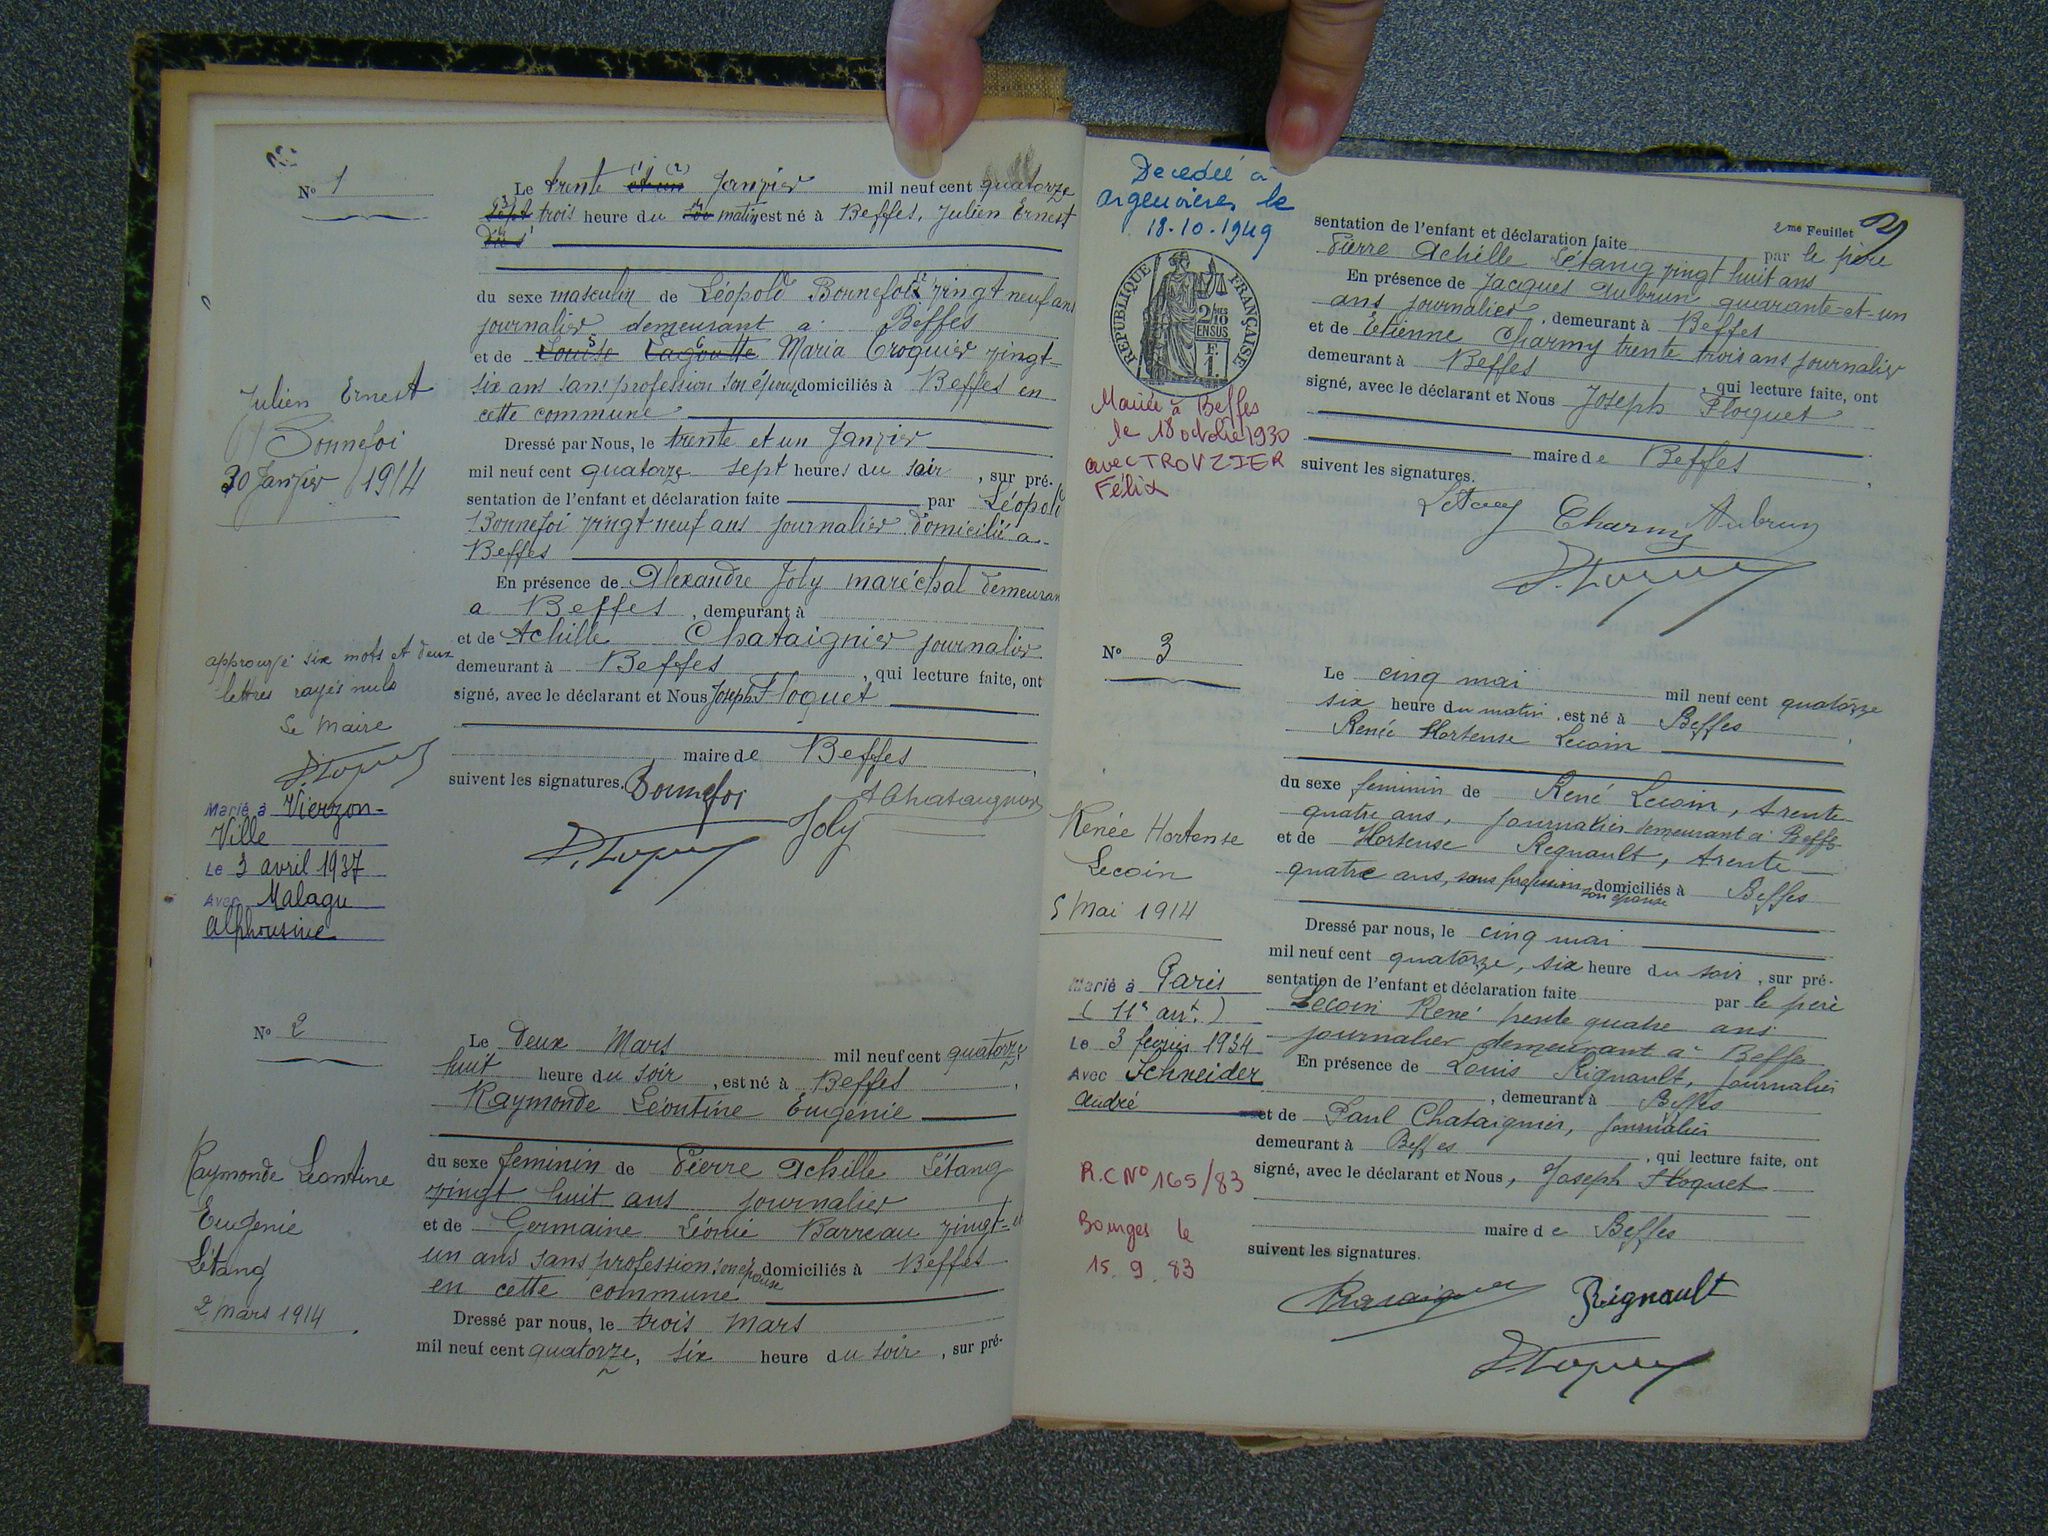 N° 1
Le trente et un Janvier mil neuf cent quatorze
sept trois heure du matin est né à Beffes, Julien Ernest
du sexe masculin de Léopold Bonnefoi vingt neuf ans
journalier demeurant à Beffes
et de Louise Lagoutte Maria Croquier vingt-
six ans sans profession son épouse, domiciliés à Beffes en
cette commune
Dressé par Nous, le trente et un Janvier
mil neuf cent quatorze sept heures du soir, sur pré-
sentation de l'enfant et déclaration faite par Léopold
Bonnefoi vingt neuf ans journalier domicilié à
Beffes
En présence de Alexandre Joly maréchal demeurant
a Beffes, demeurant à
et de Achille Chataignier journalier
demeurant à Beffes, qui lecture faite, ont
signé, avec le déclarant et Nous Joseph Floquet
maire de Beffes
suivent les signatures. Bonnefoi
A Chataignier
Joly
J. Floquet
Julien Ernest
Bonnefoi
30 Janvier 1914
approuvé six mots et deux
lettres rayés nuls
Le Maire
J. Floquet
Marié à Vierzon-
Ville
Le 3 avril 1937
Avec Malagu
Alphonsine
N° 2
Le deux Mars mil neuf cent quatorze
huit heure du soir, est né à Beffes,
Raymonde Léontine Eugénie
du sexe feminin de Pierre Achille Létang
vingt huit ans journalier
et de Germaine Léonie Barreau vingt-et
un ans sans profession son épouse domiciliés à Beffes
en cette commune
Dressé par nous, le trois Mars
mil neuf cent quatorze, six heure du soir, sur pré-
Raymonde Leontine
Eugénie
Létang
2 Mars 1914
2me Feuillet
sentation de l'enfant et déclaration faite par le père
Pierre Achille Létang vingt huit ans
En présence de Jacques Aubrun quarante-et-un
ans journalier, demeurant à Beffes
et de Etienne Charmy trente trois ans journalier
demeurant à Beffes, qui lecture faite, ont
signé, avec le déclarant et Nous Joseph Floquet
maire de Beffes
suivent les signatures.
Létang Charmy Aubrun
J. Floquet
Decedée à
Argenvières le
18.10.1949
RÉPUBLIQUE FRANÇAISE
2/10
EN SUS
F.
1.
Mariée à Beffes
le 18 octobre 1930
avec TROUZIER
Félix
N° 3
Le cinq mai mil neuf cent quatorze
six heure du matin, est né à Beffes,
Renée Hortense Lecoin
du sexe feminin de René Lecoin, trente
quatre ans, journalier demeurant à Beffes
et de Hortense Regnault, trente
quatre ans, sans profession son épouse domiciliés à Beffes
Dressé par nous, le cinq mai
mil neuf cent quatorze, six heure du soir, sur pré-
sentation de l'enfant et déclaration faite par le père
Lecoin René trente quatre ans
journalier demeurant à Beffes
En présence de Louis Rignault, journalier
, demeurant à Beffes
et de Paul Chataignier, journalier
demeurant à Beffes, qui lecture faite, ont
signé, avec le déclarant et Nous, Joseph Floquet
maire de Beffes
suivent les signatures.
Chataignier Rignault
J. Floquet
Renée Hortense
Lecoin
5 Mai 1914
Marié à Paris
(11e arrt.)
Le 3 février 1934
Avec Schneider
André
R.C N° 165/83
Bourges le
15.9.83